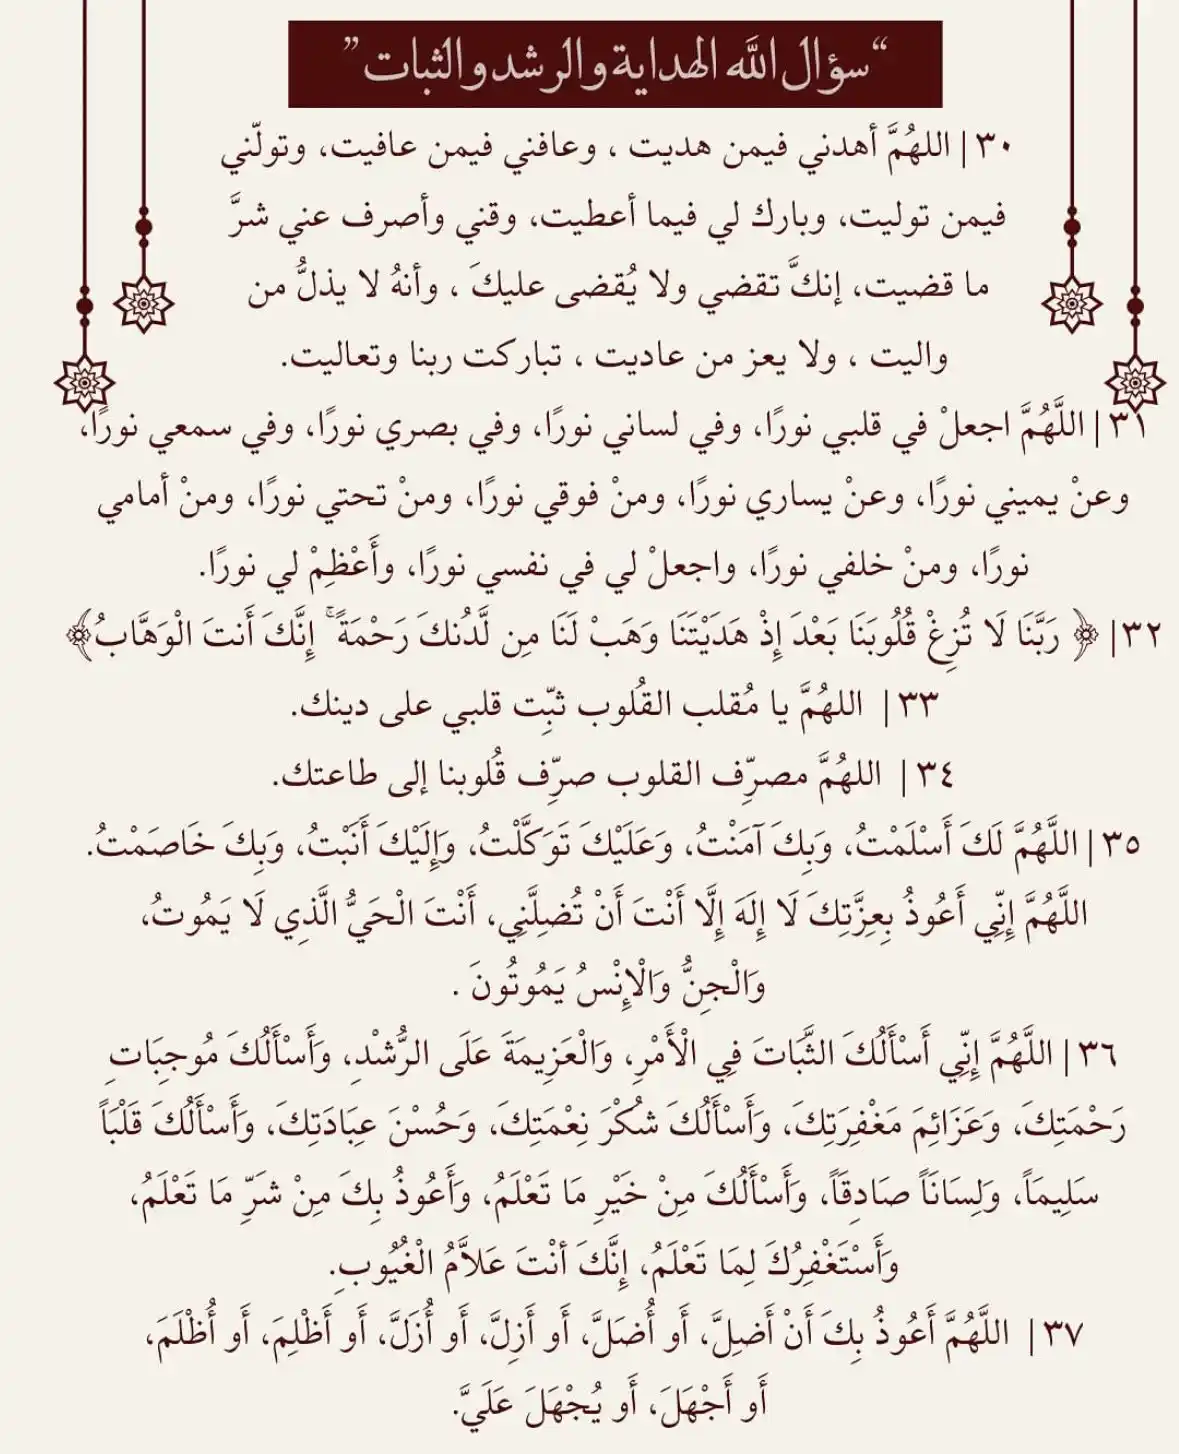 “سؤال الله الهداية والرشد والثبات”
٣٠ | اللهُمَّ أهدني فيمن هديت ، وعافني فيمن عافيت، وتولّني
فيمن توليت، وبارك لي فيما أعطيت، وقني وأصرف عني شرَّ
ما قضيت، إنكَّ تقضي ولا يُقضى عليكَ ، وأنهُ لا يذلُّ من
واليت ، ولا يعز من عاديت ، تباركت ربنا وتعاليت.
٣١ | اللَّهُمَّ اجعلْ في قلبي نورًا، وفي لساني نورًا، وفي بصري نورًا، وفي سمعي نورًا،
وعنْ يميني نورًا، وعنْ يساري نورًا، ومنْ فوقي نورًا، ومنْ تحتي نورًا، ومنْ أمامي
نورًا، ومنْ خلفي نورًا، واجعلْ لي في نفسي نورًا، وأَعْظِمْ لي نورًا.
٣٢ | ﴿ رَبَّنَا لَا تُزِغْ قُلُوبَنَا بَعْدَ إِذْ هَدَيْتَنَا وَهَبْ لَنَا مِن لَّدُنكَ رَحْمَةً ۚ إِنَّكَ أَنتَ الْوَهَّابُ﴾
٣٣ | اللهُمَّ يا مُقلب القُلوب ثبِّت قلبي على دينك.
٣٤ | اللهُمَّ مصرِّف القلوب صرِّف قُلوبنا إلى طاعتك.
٣٥ | اللَّهُمَّ لَكَ أَسْلَمْتُ، وَبِكَ آمَنْتُ، وَعَلَيْكَ تَوَكَّلْتُ، وَإِلَيْكَ أَنَبْتُ، وَبِكَ خَاصَمْتُ.
اللَّهُمَّ إِنِّي أَعُوذُ بِعِزَّتِكَ لَا إِلَهَ إِلَّا أَنْتَ أَنْ تُضِلَّنِي، أَنْتَ الْحَيُّ الَّذِي لَا يَمُوتُ،
وَالْجِنُّ وَالْإِنْسُ يَمُوتُونَ .
٣٦ | اللَّهُمَّ إِنِّي أَسْأَلُكَ الثَّبَاتَ فِي الْأَمْرِ، وَالْعَزِيمَةَ عَلَى الرُّشْدِ، وَأَسْأَلُكَ مُوجِبَاتِ
رَحْمَتِكَ، وَعَزَائِمَ مَغْفِرَتِكَ، وَأَسْأَلُكَ شُكْرَ نِعْمَتِكَ، وَحُسْنَ عِبَادَتِكَ، وَأَسْأَلُكَ قَلْبَاً
سَلِيمَاً، وَلِسَانَاً صَادِقَاً، وَأَسْأَلُكَ مِنْ خَيْرِ مَا تَعْلَمُ، وَأَعُوذُ بِكَ مِنْ شَرِّ مَا تَعْلَمُ،
وَأَسْتَغْفِرُكَ لِمَا تَعْلَمُ، إِنَّكَ أنْتَ عَلاَّمُ الْغُيُوبِ.
٣٧ | اللَّهُمَّ أَعُوذُ بِكَ أَنْ أَضِلَّ، أَو أُضَلَّ، أَو أَزِلَّ، أَو أُزَلَّ، أَو أَظْلِمَ، أَو أُظْلَمَ،
أَو أَجْهَلَ، أَو يُجْهَلَ عَلَيَّ.